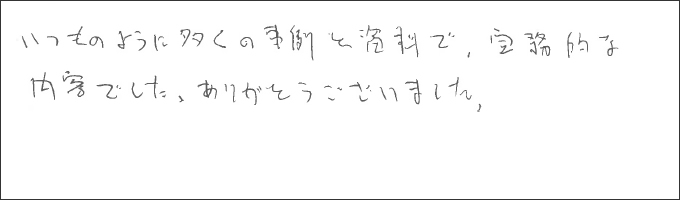 いつものように多くの事例と資料で、実務的な
内容でした、ありがとうございました、